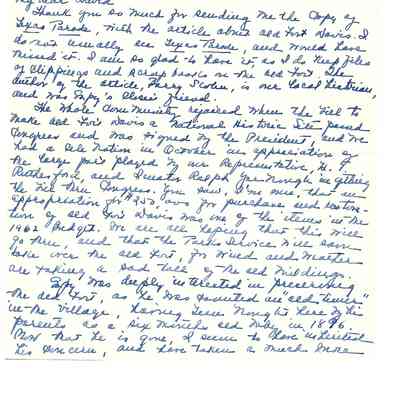 My dear David
Thank you so much for sending me the copy of
Texas Parade, with the article about old Fort Davis. I
do not usually see Texas Parade, and would have
missed it. I am so glad to have it, as I do keep files
of clippings and scrap books on the old Fort. The
author of the article, Barry Scobee, is our local historian,
and was close friend.
The whole community rejoiced when the bill to
make old Fort Davis a National Historic Site passed
Congress and was signed by the President, and we
had a celebration in October in appreciation of
the large part played by our Representative, J. T.
Rutherford, and Senator Ralph Yarborough in getting
the bill thru Congress. You saw, I'm sure, that an
appropriation for $250,000 for purchase and restora-
tion of old Fort Davis was one of the items in the
1962 Budget. We are all hoping that this will
go thru, and that the Parks Service will soon
take over the old Fort, for wind and weather
are taking a sad toll of the old buildings.
was deeply interested in preserving
the old Fort, as he was counted an "old timer"
in the village, having been brought here by his
parents as a six months old baby in 1896.
Now that he is gone, I seem to have inherited
his concern, and have taken a much more